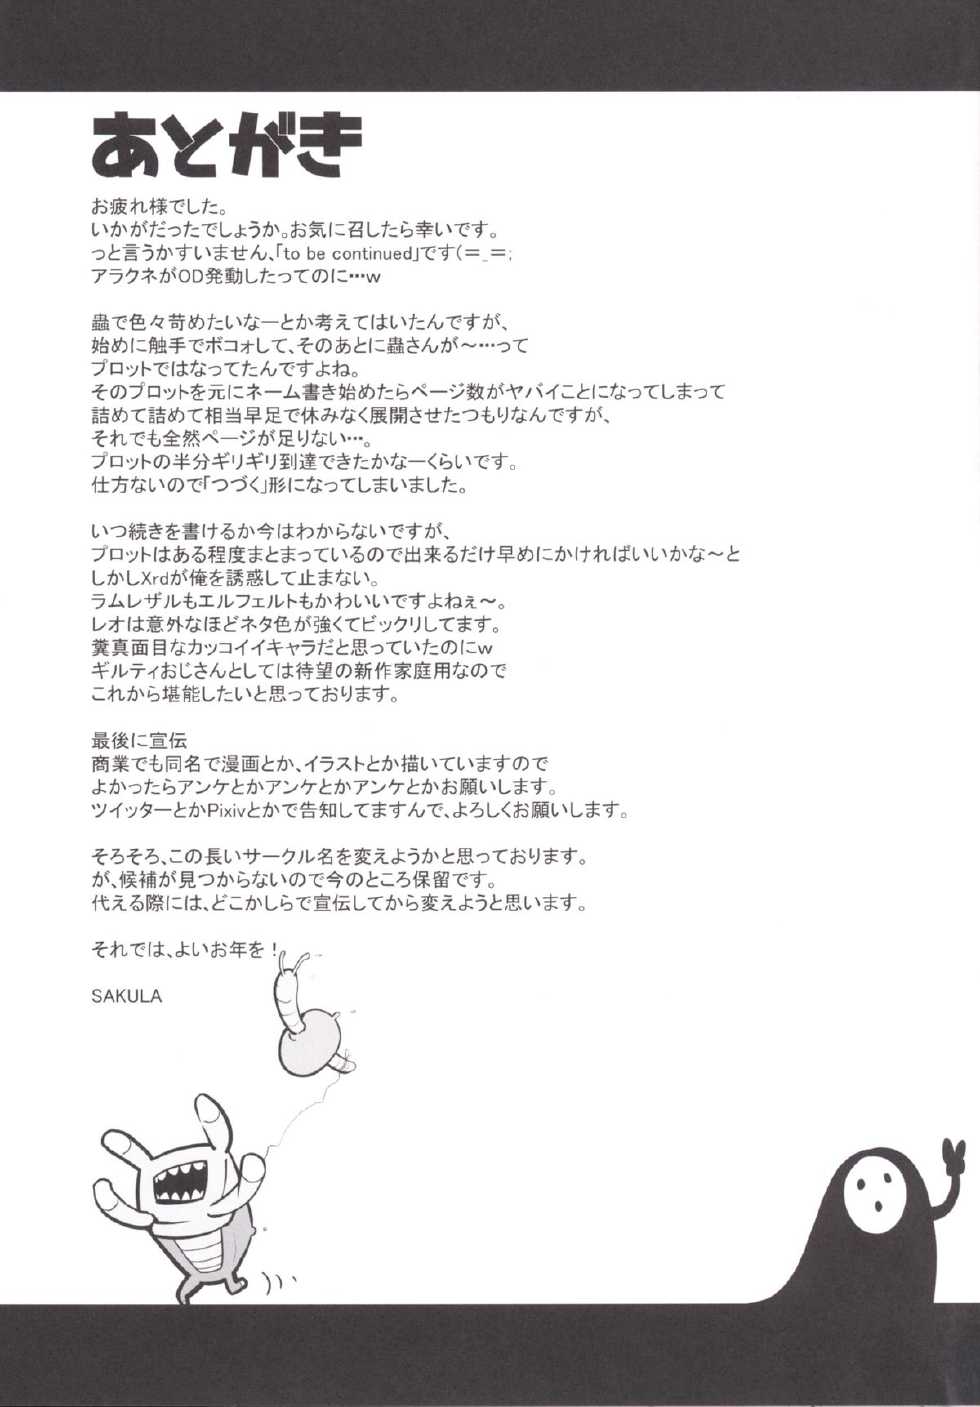 あとがき
お疲れ様でした。
いかがだったでしょうか。お気に召したら幸いです。
っと言うかすいません、「to be continued」です(＝_＝;
アラクネがOD発動したってのに…w
蟲で色々苛めたいなーとか考えてはいたんですが、
始めに触手でボコォして、そのあとに蟲さんが～…って
プロットではなってたんですよね。
そのプロットを元にネーム書き始めたらページ数がヤバイことになってしまって
詰めて詰めて相当早足で休みなく展開させたつもりなんですが、
それでも全然ページが足りない…。
プロットの半分ギリギリ到達できたかなーくらいです。
仕方ないので「つづく」形になってしまいました。
いつ続きを書けるか今はわからないですが、
プロットはある程度まとまっているので出来るだけ早めにかければいいかな～と
しかしXrdが俺を誘惑して止まない。
ラムレザルもエルフェルトもかわいいですよねぇ～。
レオは意外なほどネタ色が強くてビックリしてます。
糞真面目なカッコイイキャラだと思っていたのにw
ギルティおじさんとしては待望の新作家庭用なので
これから堪能したいと思っております。
最後に宣伝
商業でも同名で漫画とか、イラストとか描いていますので
よかったらアンケとかアンケとかアンケとかお願いします。
ツイッターとかPixivとかで告知してますんで、よろしくお願いします。
そろそろ、この長いサークル名を変えようかと思っております。
が、候補が見つからないので今のところ保留です。
代える際には、どこかしらで宣伝してから変えようと思います。
それでは、よいお年を！
SAKULA